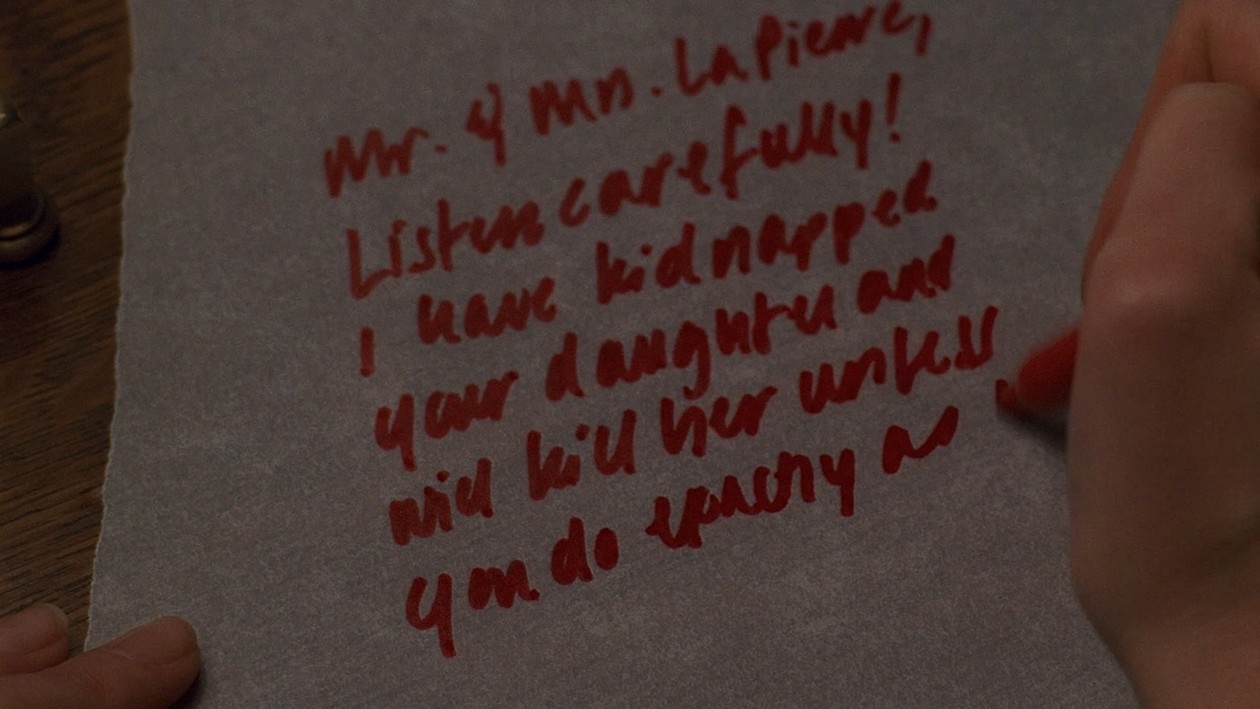 Mr. & Mrs. LaPierre,
Listen carefully!
I have kidnapped
your daughter and
will kill her unless
you do exactly as